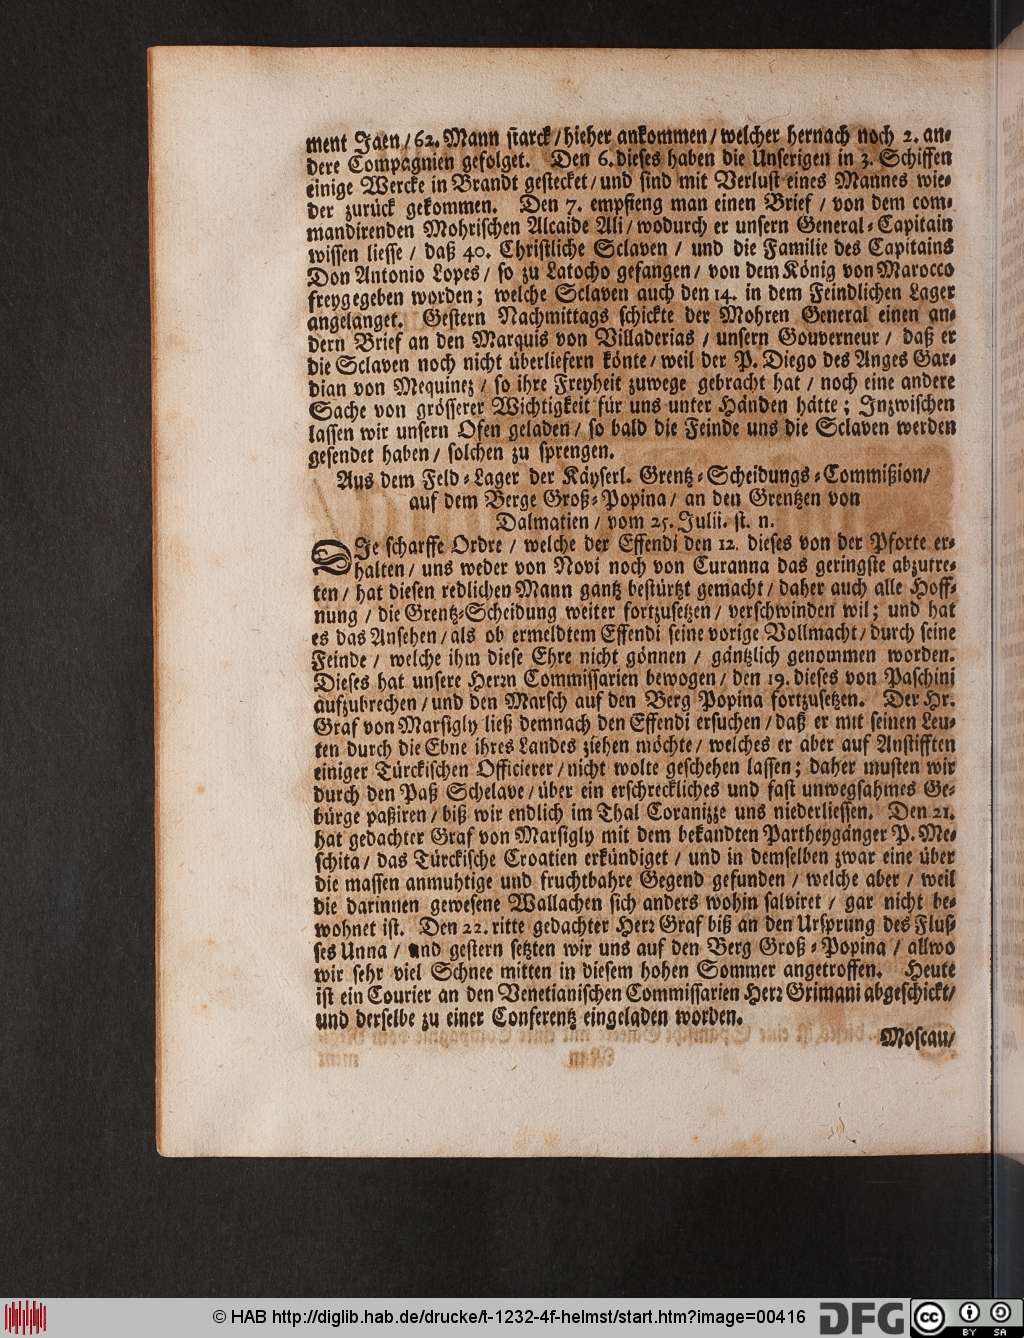 ment Jaen / 62. Mann starck / hieher ankommen / welcher hernach noch 2. an-
dere Compagnien gefolget. Den 6. dieses haben die Unserigen in 3. Schiffen
einige Wercke in Brandt gestecket / und sind mit Verlust eines Mannes wie-
der zurück gekommen. Den 7. empfieng man einen Brief / von dem com-
mandirenden Mohrischen Alcaide Ali / wodurch er unsern General-Capitain
wissen liesse / daß 40. Christliche Sclaven / und die Familie des Capitains
Don Antonio Lopes / so zu Latocho gefangen / von dem König von Marocco
freygegeben worden; welche Sclaven auch den 14. in dem Feindlichen Lager
angelanget. Gestern Nachmittags schickte der Mohren General einen an-
dern Brief an den Marquis von Villaderias / unsern Gouverneur / daß er
die Sclaven noch nicht überliefern könte / weil der P. Diego des Anges Gar-
dian von Mequinez / so ihre Freyheit zuwege gebracht hat / noch eine andere
Sache von grösserer Wichtigkeit für uns unter Händen hätte; Inzwischen
lassen wir unsern Ofen geladen / so bald die Feinde uns die Sclaven werden
gesendet haben / solchen zu sprengen.
Aus dem Feld-Lager der Käyserl. Grentz-Scheidungs-Commißion /
auf dem Berge Groß-Popina / an den Grentzen von
Dalmatien / vom 25. Julii. st. n.
DIe scharffe Ordre / welche der Effendi den 12. dieses von der Pforte er-
halten / uns weder von Novi noch von Curanna das geringste abzutre-
ten / hat diesen redlichen Mann gantz bestürtzt gemacht / daher auch alle Hoff-
nung / die Grentz-Scheidung weiter fortzusetzen / verschwinden wil; und hat
es das Ansehen / als ob ermeldtem Effendi seine vorige Vollmacht / durch seine
Feinde / welche ihm diese Ehre nicht gönnen / gäntzlich genommen worden.
Dieses hat unsere Herrn Commissarien bewogen / den 19. dieses von Paschini
aufzubrechen / und den Marsch auf den Berg Popina fortzusetzen. Der Hr.
Graf von Marsigly ließ demnach den Effendi ersuchen / daß er mit seinen Leu-
ten durch die Ebne ihres Landes ziehen möchte / welches er aber auf Anstifften
einiger Türckischen Officierer / nicht wolte geschehen lassen; daher musten wir
durch den Paß Schelave / über ein erschreckliches und fast unwegsahmes Ge-
bürge paßiren / biß wir endlich im Thal Coranizze uns niederliessen. Den 21.
hat gedachter Graf von Marsigly mit dem bekandten Partheygänger P. Me-
schita / das Türckische Croatien erkündiget / und in demselben zwar eine über
die massen anmuhtige und fruchtbahre Gegend gefunden / welche aber / weil
die darinnen gewesene Wallachen sich anders wohin salviret / gar nicht be-
wohnet ist. Den 22. ritte gedachter Herr Graf biß an den Ursprung des Flus-
ses Unna / und gestern setzten wir uns auf den Berg Groß-Popina / allwo
wir sehr viel Schnee mitten in diesem hohen Sommer angetroffen. Heute
ist ein Courier an den Venetianischen Commissarien Herr Grimani abgeschickt /
und derselbe zu einer Conferentz eingeladen worden.
Moscau /
© HAB http://diglib.hab.de/drucke/t-1232-4f-helmst/start.htm?image=00416
DFG
cc BY SA